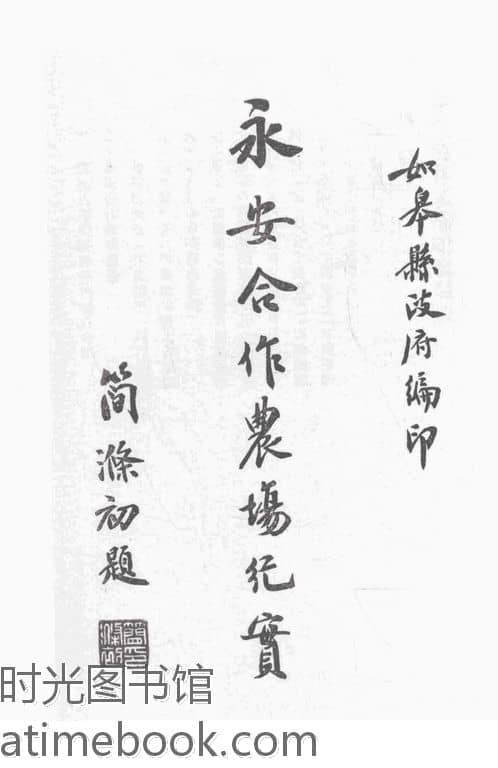 如皋縣政府編印
永安合作農場紀實
簡滌初題
时光图书馆
atimebook.com